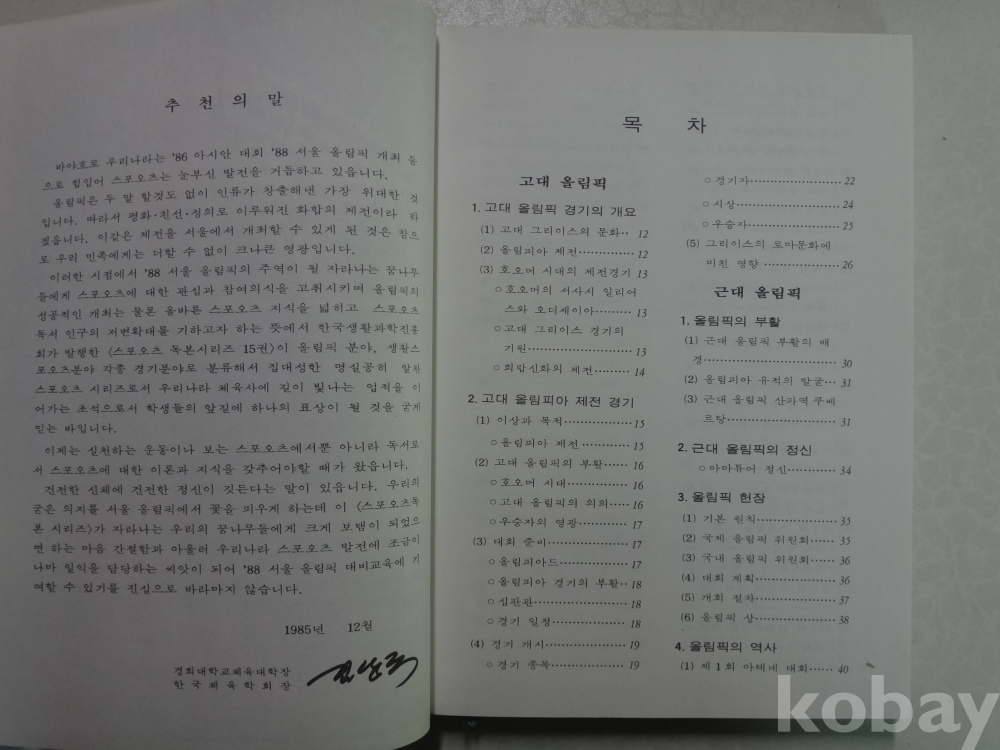 추 천 의 말
바야흐로 우리나라는 '86 아시안 대회 '88 서울 올림픽 개최 등
으로 힘입어 스포오츠는 눈부신 발전을 거듭하고 있읍니다.
올림픽은 두 말 할것도 없이 인류가 창출해낸 가장 위대한 것
입니다. 따라서 평화·친선·정의로 이루워진 화합의 제전이라 하
겠읍니다. 이같은 제전을 서울에서 개최할 수 있게 된 것은 참으
로 우리 민족에게는 더할 수 없이 크나큰 영광입니다.
이러한 시점에서 '88 서울 올림픽의 주역이 될 자라나는 꿈나무
들에게 스포오츠에 대한 관심과 참여의식을 고취시키며 올림픽의
성공적인 개최는 물론 올바른 스포오츠 지식을 넓히고 스포오츠
독서 인구의 저변확대를 기하고자 하는 뜻에서 한국생활과학진흥
회가 발행한 〈스포오츠 독본시리즈 15권〉이 올림픽 분야, 생활스
포오츠분야 각종 경기분야로 분류해서 집대성한 명실공히 알찬
스포오츠 시리즈로서 우리나라 체육사에 길이 빛나는 업적을 이
어가는 초석으로서 학생들의 앞길에 하나의 표상이 될 것을 굳게
믿는 바입니다.
이제는 실천하는 운동이나 보는 스포오츠에서뿐 아니라 독서로
서 스포오츠에 대한 이론과 지식을 갖추어야할 때가 왔읍니다.
건전한 신체에 건전한 정신이 깃든다는 말이 있읍니다. 우리의
굳은 의지를 서울 올림픽에서 꽃을 피우게 하는데 이 〈스포오츠독
본 시리즈〉가 자라나는 우리의 꿈나무들에게 크게 보탬이 되었으
면 하는 마음 간절함과 아울러 우리나라 스포오츠 발전에 조금이
나마 일익을 담당하는 씨앗이 되어 '88 서울 올림픽 대비교육에 기
여할 수 있기를 진심으로 바라마지 않습니다.
1985년 12월
경희대학교체육대학장
한국체육학회장
목 차
고대 올림픽
1. 고대 올림픽 경기의 개요
(1) 고대 그리이스의 문화·· 12
(2) 올림피아 제전············12
(3) 호오머 시대의 제전경기 13
○호오머의 서사시 일리어
스와 오디세이아··········13
○고대 그리이스 경기의
기원························13
○희랍신화의 제전········14
2. 고대 올림피아 제전 경기
(1) 이상과 목적··············15
○올림피아 제전··········15
(2) 고대 올림픽의 부활······16
○호오머 시대·············16
○고대 올림픽의 의의·····16
○우승자의 영광··········17
(3) 대회 준비················17
○올림피아드··············17
○올림피아 경기의 부활··18
○심판관···················18
○경기 일정···············18
(4) 경기 개시················19
○경기 종목···············19
○경기자······················22
○시상························24
○우승자······················25
(5) 그리이스의 로마문화에
미친 영향···················26
근대 올림픽
1. 올림픽의 부활
(1) 근대 올림픽 부활의 배
경···························30
(2) 올림피아 유적의 발굴···31
(3) 근대 올림픽 산파역 쿠베
르탕·························31
2. 근대 올림픽의 정신
○아마튜어 정신···········34
3. 올림픽 헌장
(1) 기본 원칙················35
(2) 국제 올림픽 위원회·····35
(3) 국내 올림픽 위원회·····36
(4) 대회 계획················36
(5) 개회 절차················37
(6) 올림픽 상················38
4. 올림픽의 역사
(1) 제1회 아테네 대회······40
kobay